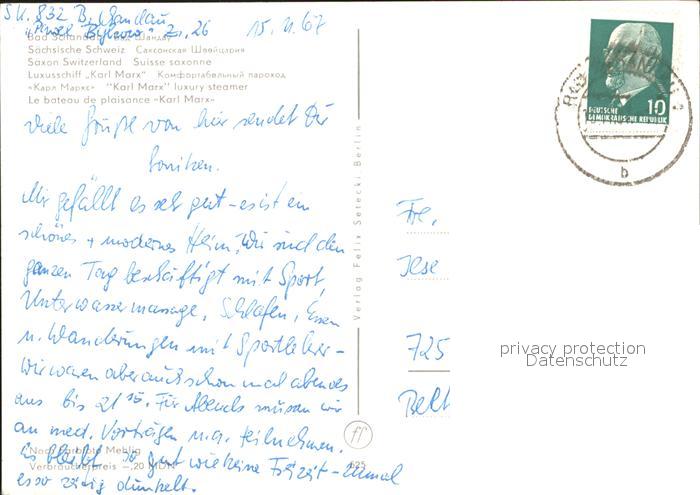 SK. 832 B. Schandau
"Pawel Bykow" Zi. 26 15. 11. 67
Bad Schandau Бад Шандау
Sächsische Schweiz Саксонская Швейцария
Saxon Switzerland Suisse saxonne
Luxusschiff „Karl Marx" Комфортабельный пароход
«Карл Маркс» "Karl Marx" luxury steamer
Le bateau de plaisance «Karl Marx»
viele Grüße von hier sendet Dir
Mir gefällt es sehr gut - es ist ein
schönes + modernes Heim, Wir sind den
ganzen Tag beschäftigt mit Sport,
Unterwassermassage, Schlafen, Essen
u. Wanderungen mit Sportlehrer -
wir waren aber auch schon mal abends
aus bis 21 15. Für Abends müssen wir
an med. Vorträgen u.a. teilnehmen.
Es bleibt so gut wie keine Freizeit - zumal
es so zeitig dunkelt.
Nach Farbfoto Mehlig
Verbraucherpreis -,20 MDN
625
Verlag Felix Setecki, Berlin
DEUTSCHE
DEMOKRATISCHE REPUBLIK
10
BAD SCHANDAU
b
Fr.
Ilse
725
privacy protection
Datenschutz